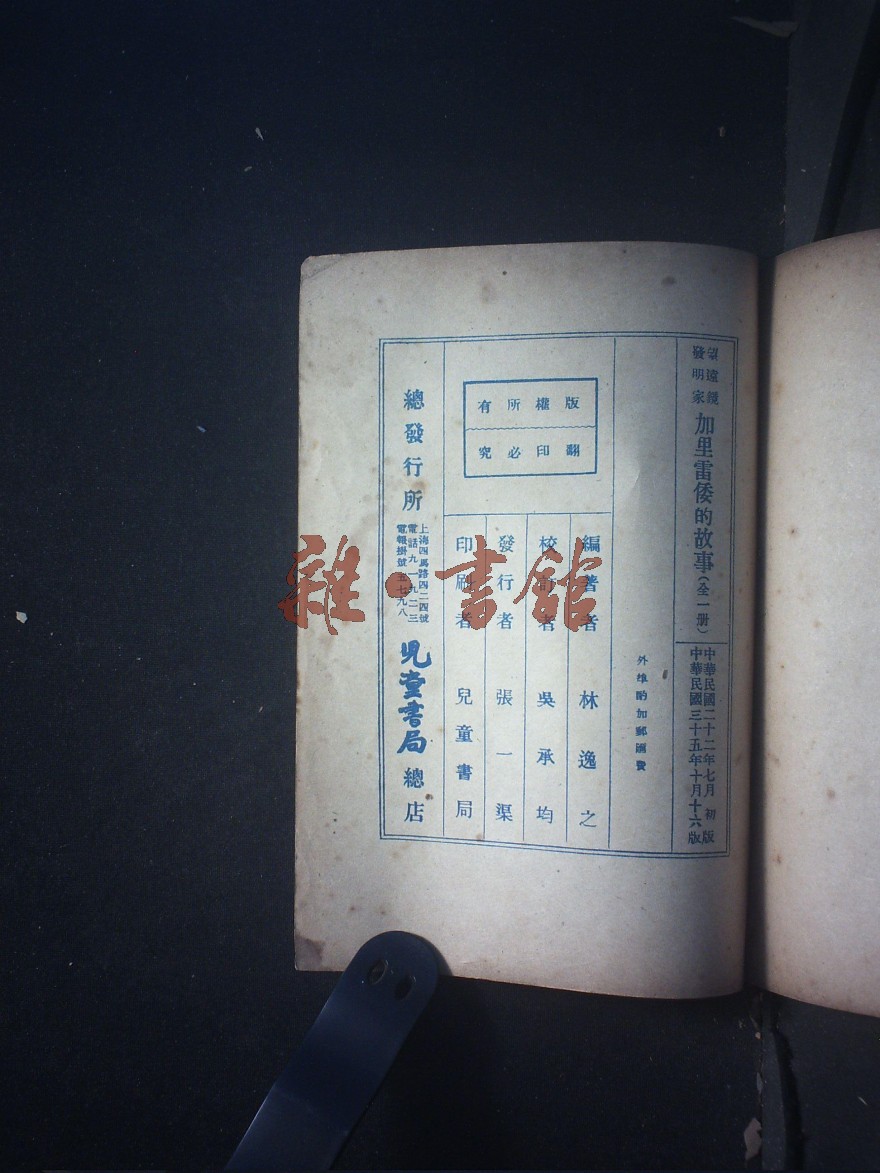 望遠鏡
發明家
加里雷倭的故事(全一册)
中華民國二十二年七月 初版
中華民國三十五年十月十六版
外埠酌加郵匯費
版權所有
翻印必究
編著者 林逸之
校訂者 吳承均
發行者 張一渠
印刷者 兒童書局
總發行所
上海四馬路四二四號
電話九一九二三
電報掛號五七九八
兒童書局總店
雜·書館